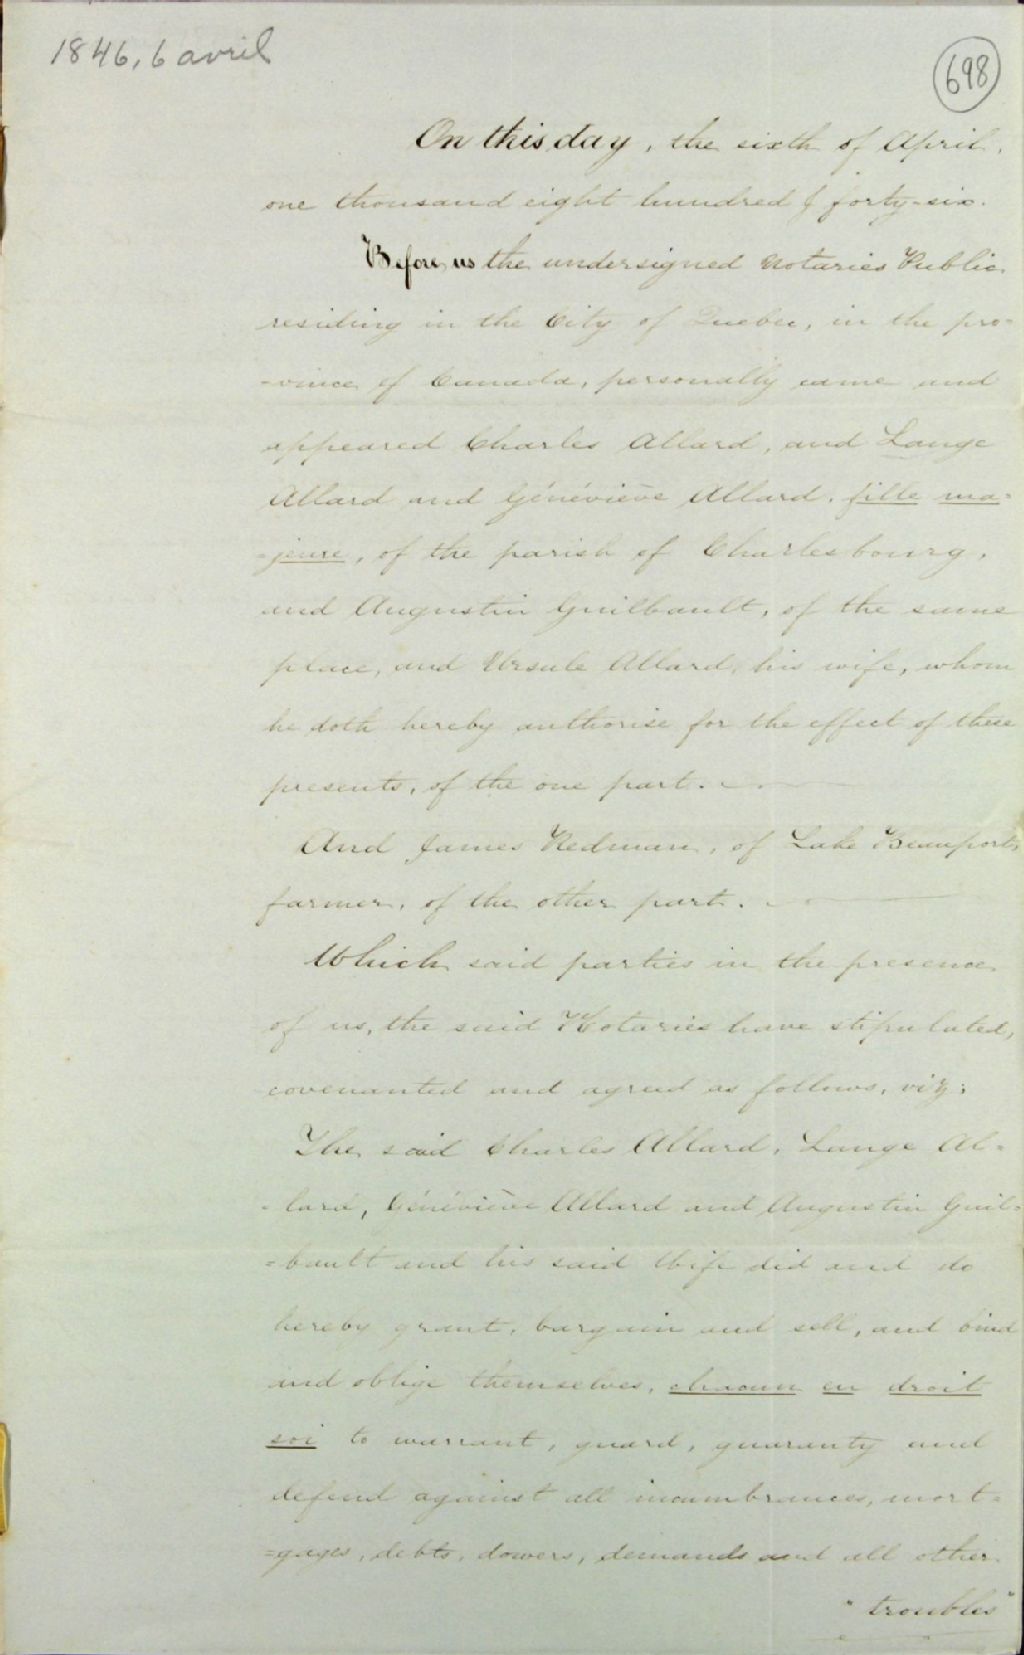 1846, 6 avril
698
On this day, the sixth of April,
one thousand eight hundred & forty-six.
Before us the undersigned Notaries Public
residing in the City of Quebec, in the pro=
=vince of Canada, personally came and
appeared Charles Allard, and Lange
Allard and Généviève Allard, fille ma=
=jeure, of the parish of Charlesbourg,
and Augustin Guilbault, of the same
place, and Ursule Allard, his wife, whom
he doth hereby authorise for the effect of these
presents, of the one part.
And James Redman, of Lake Beauport,
farmer, of the other part.
Which said parties in the presence
of us, the said Notaries have stipulated,
covenanted and agreed as follows, viz;
The said Charles Allard, Lange Al=
=lard, Généviève Allard and Augustin Guil=
=bault and his said Wife did and do
hereby grant, bargain and sell, and bind
and oblige themselves, chacun en droit
soi to warrant, guard, guaranty and
defend against all incumbrances, mort=
=gages, debts, dowers, demands and all other
"troubles"